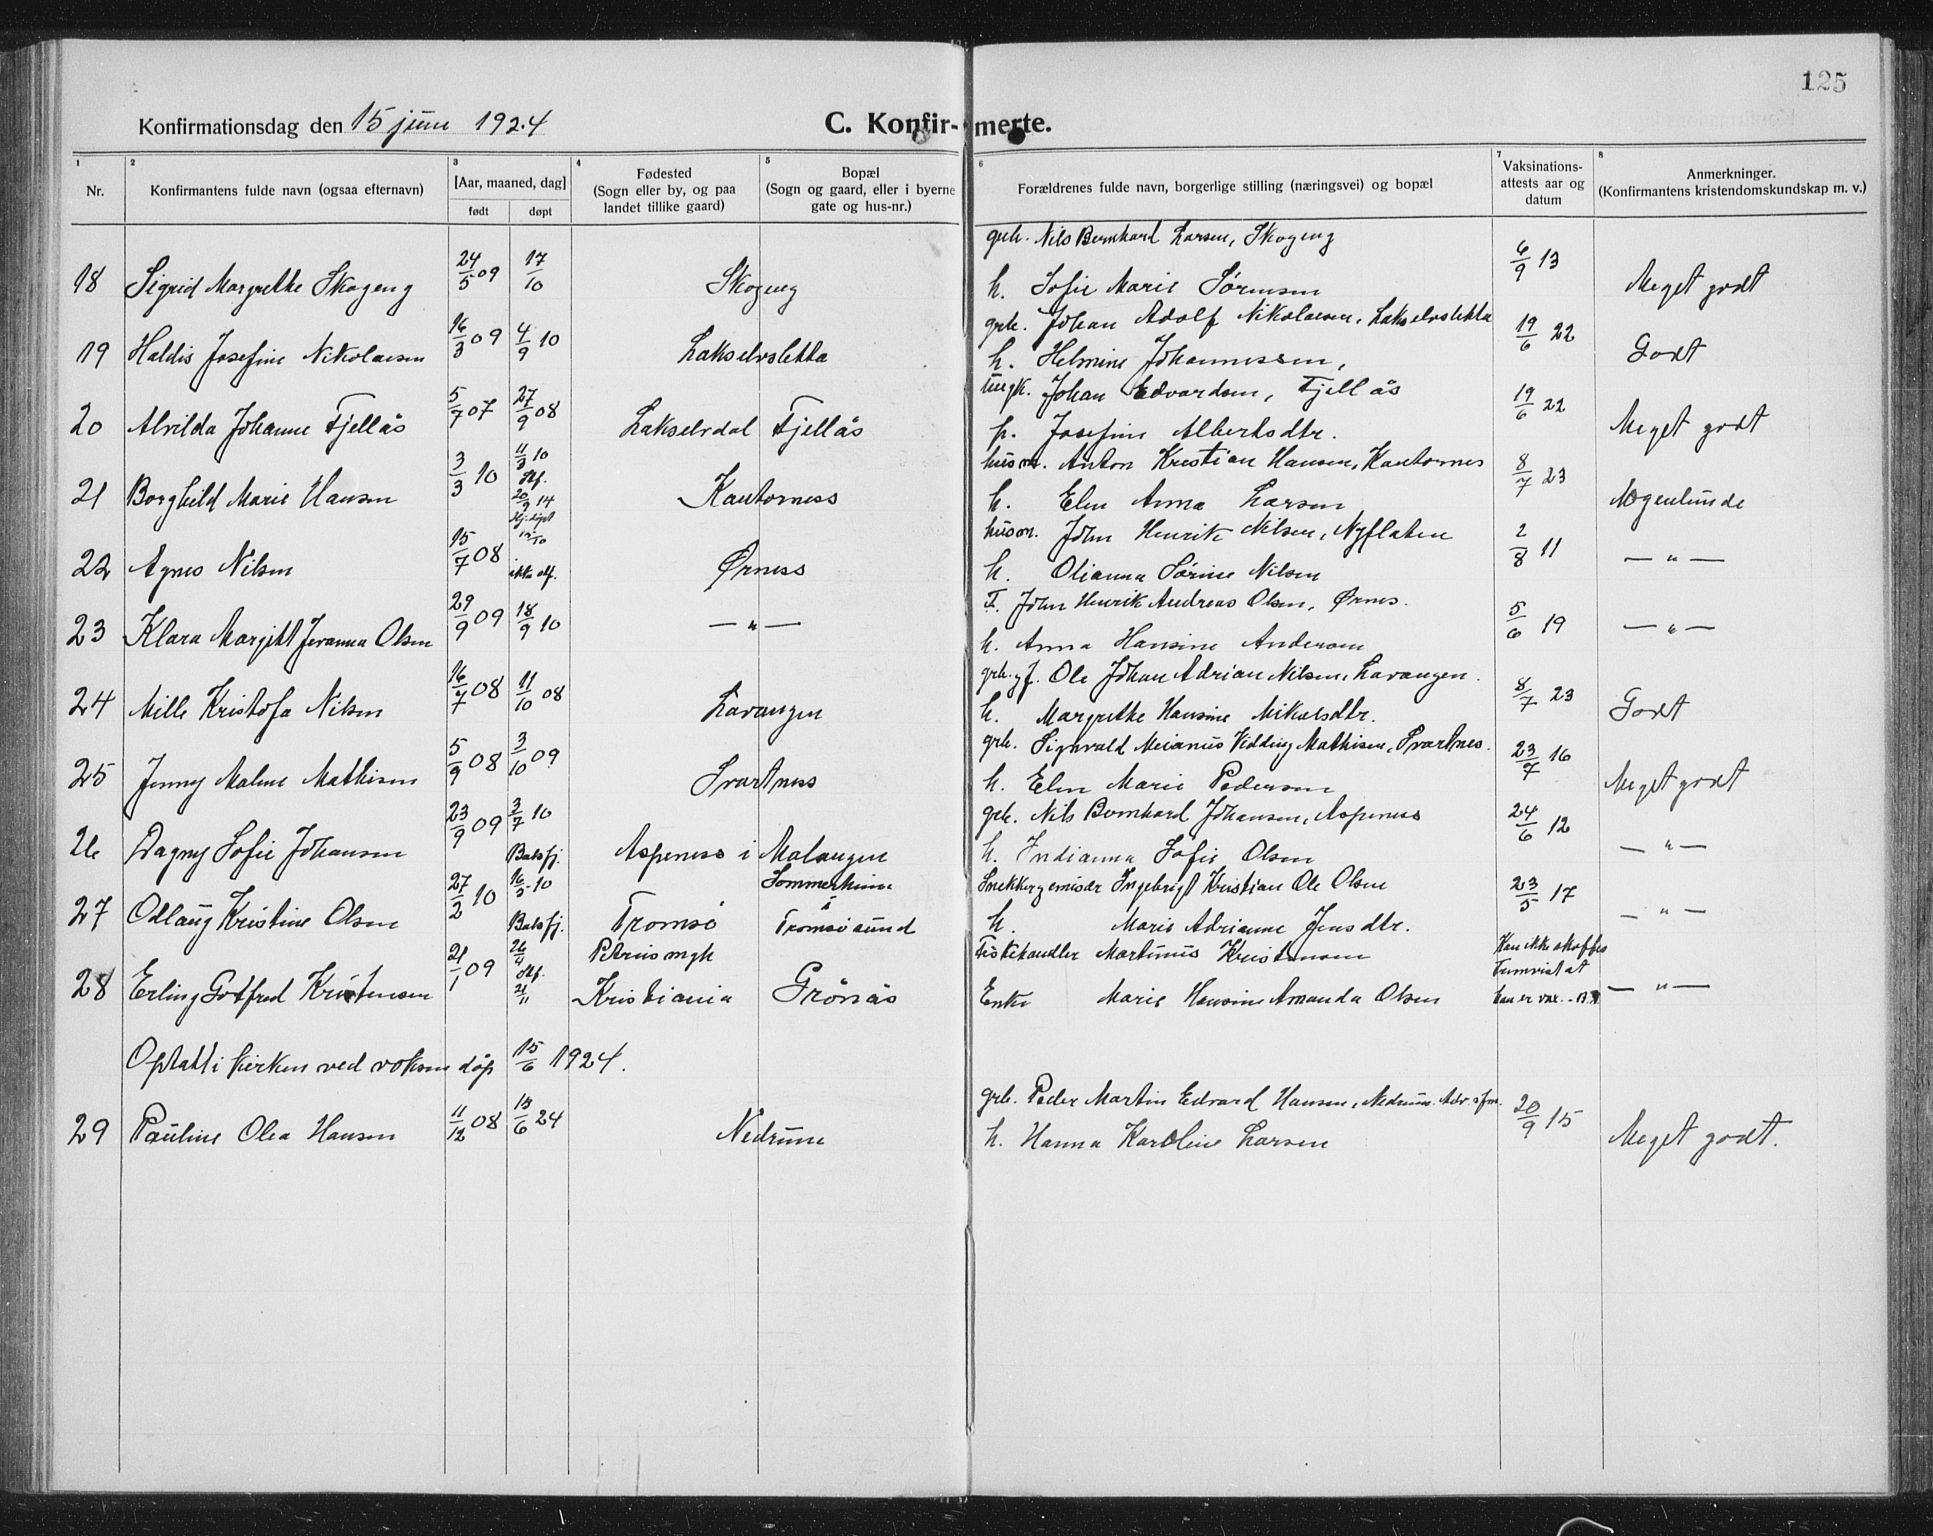 125
Konfirmationsdag den 15 juni 1924
C. Konfir-merte.
1 2 3 4 5 6 7 8
Nr. Konfirmantens fulde navn (ogsaa efternavn) [Aar, maaned, dag] født døpt Fødested (Sogn eller by, og paa landet tillike gaard) Bopæl (Sogn og gaard, eller i byerne gate og hus-nr.) Forældrenes fulde navn, borgerlige stilling (næringsvei) og bopæl Vaksinations-attests aar og datum Anmerkninger. (Konfirmantens kristendomskundskap m. v.)
grb. Nils Bernhard Larsen, Skogeng
18 Sigrid Margrethe Skogeng 24/5 09 17/10 Skogeng h. Sofie Marie Sørensen 6/9 13 Meget godt
grb. Johan Adolf Nikolaisen, Lakselvsletta
19 Haldis Josefine Nikolaisen 16/3 09 4/9 10 Lakselvsletta h. Helmine Johannessen, 19/6 22 Godt
ungk. Johan Edvardsen, Fjellås
20 Alvilda Johanne Fjellås 5/7 07 27/9 08 Lakselvdal Fjellås p. Josefine Albertsdtr. 19/6 22 Meget godt
husm. Anton Kristian Hansen, Kantornes
21 Borghild Marie Hansen 3/3 10 Stf. Kantorness h. Elen Anna Larsen 8/7 23 Nogenlunde
husm. John Henrik Nilsen, Nyflaten
22 Agnes Nilsen 15/7 08 Hj. døpt ikke stf. Ørness h. Olianna Sørine Nilsen 2/8 11 — " —
F. John Henrik Andreas Olsen, Ørnes.
23 Klara Margitt Jovanna Olsen 29/9 09 18/9 10 — " — h. Anna Hansine Andersen 5/6 19 — " —
grb. gf. Ole Johan Adrian Nilsen, Lavangen.
24 Mille Kristofa Nilsen 16/7 08 11/10 08 Lavangen h. Margrethe Hansine Mikalsdtr. 8/7 23 Godt
grb. Signvald Meianus Vidding Mathisen, Svartnes.
25 Jenny Malene Mathisen 5/9 08 3/10 09 Svartness h. Elen Marie Pedersen 23/7 16 Meget godt
grb. Nils Bernhard Johansen, Aspeness
26 Dagny Sofie Johansen 23/9 09 3/7 10 Balsfj. Aspeness i Malangen h. Indianna Sofie Olsen 24/6 12 — " —
Snekkergemisær Ingebrigt Kristian Ole Olsen
27 Odlaug Kristine Olsen 27/2 10 16/5 10 Balsfj. Tromsø Sommerhinn i Tromsøsund h. Marie Adrianne Jensdtr. 23/5 17 — " —
Fiskehandler Martinus Kristensen
28 Erling Gotfred Kristensen 21/1 09 Stf. Petrus mgh Kristiania Grønås Enke Marie Hansine Amanda Olsen Kan ikke skaffes — " —
Optatt i kirken ved voksen døp 15/6 1924.
grb. Peder Martin Edvard Hansen, Nedrum.
29 Pauline Olea Hansen 11/12 08 15/6 24 Nedrum h. Hanna Karoline Larsen 20/9 15 Meget godt.